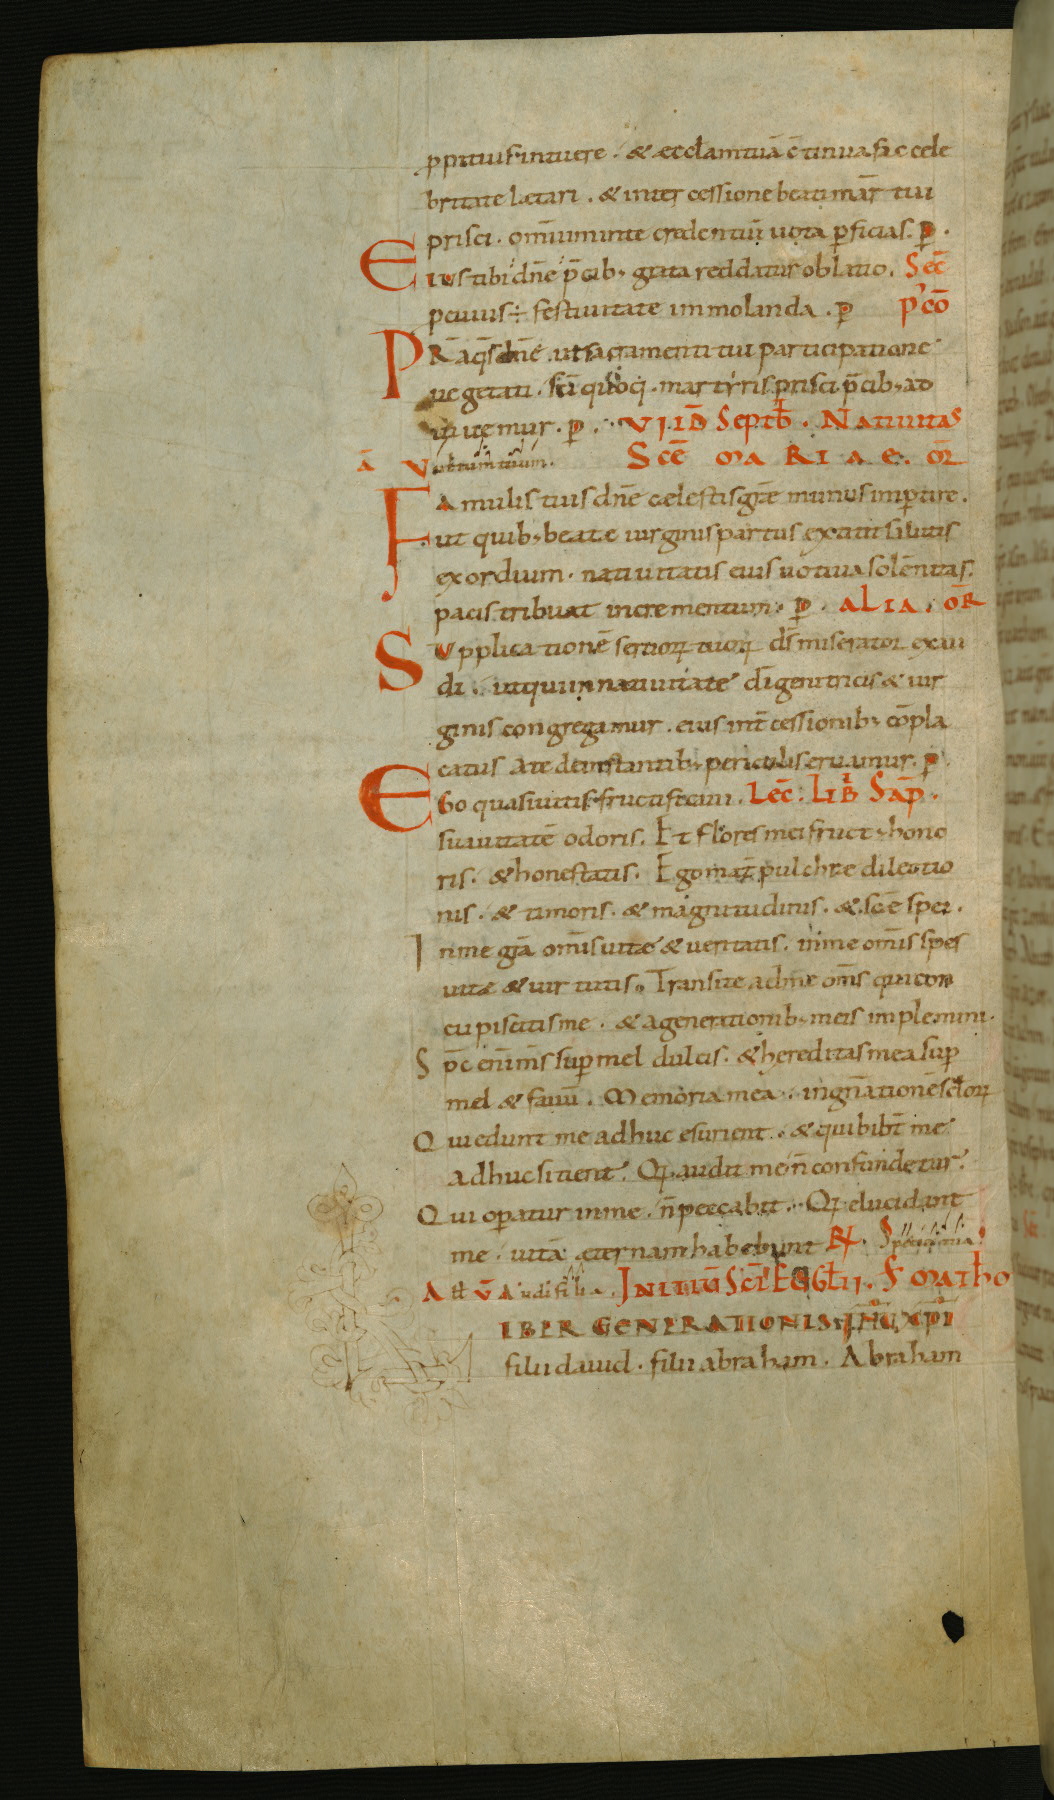 p̄pitius intuere. & æccl̄am tuā c̄tinua fac cele
britate lætari. & intercessione beati mār̄ tui
prisci. omniumin te credentiū uota p̄ficias. p̄.
Eius tibi dn̄e p̄cib; grata reddatur oblatio. Sec̄
p cuius ÷ festiuitate immolanda. p̄ p'cō
PR̄ aq̄s dn̄e. ut sacramenti tui participatione
uegetati. sc̄i quoq; martyris prisci p̄cib; ad
iuuemur. p̄. VI ID Septb̄. Natiuitas
ā V ultum tuum. Scē MARIAE. or̄
Famulis tuis dn̄e cælestis grē munus impertire.
ut quib; beate uirginis partus extitit salutis
exordium. natiuitatis eius uotiua solēnitas.
pacis tribuat incrementum. p̄. ALIA. or̄
Supplicationē seruorꝝ tuorꝝ ds̄ miserator exau
di. ut qui in natiuitate dī genitricis & uir
ginis congregamur. eius int̄cessionib; cōpla
catus a te de instantib; periculis eruamur. p̄.
Ego quasi uitis fructificaui. Lec̄. Lib̄ Sap̄.
suauitatē odoris. Et flores mei fruct; hono
ris. & honestatis. Ego mat̄ pulchre dilectio
nis. & timoris. & magnitudinis. & scē spei.
In me gr̄a om̄is uitæ & ueritatis. in me om̄is spes
uitæ & uirtutis. Transite ad me om̄s qui con
cupiscitis me. & a generationib; meis implemini.
Sp̄c enim m̄s sup mel dulcis. & hereditas mea sup
mel & fauū. Memoria mea. in gn̄atione sc̄lorꝝ
Qui edunt me adhuc esurient. & qui bibt̄ me
adhuc sitient. Q; audit me n̄ confundetur.
Qui opatur in me. n̄ peccabit. Q; elucidant
me. uitā æternam habebunt R̄. Specie tua.
All̄ V̄ Audi filia. Initiū Sc̄i Eugl̄ii. S Matho
IBER GENERATIONIS IHU XPI
filii dauid. filii abraham. Abraham